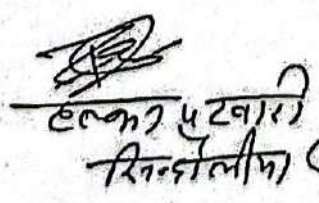 हल्का पटवारी
सिन्दोलीया